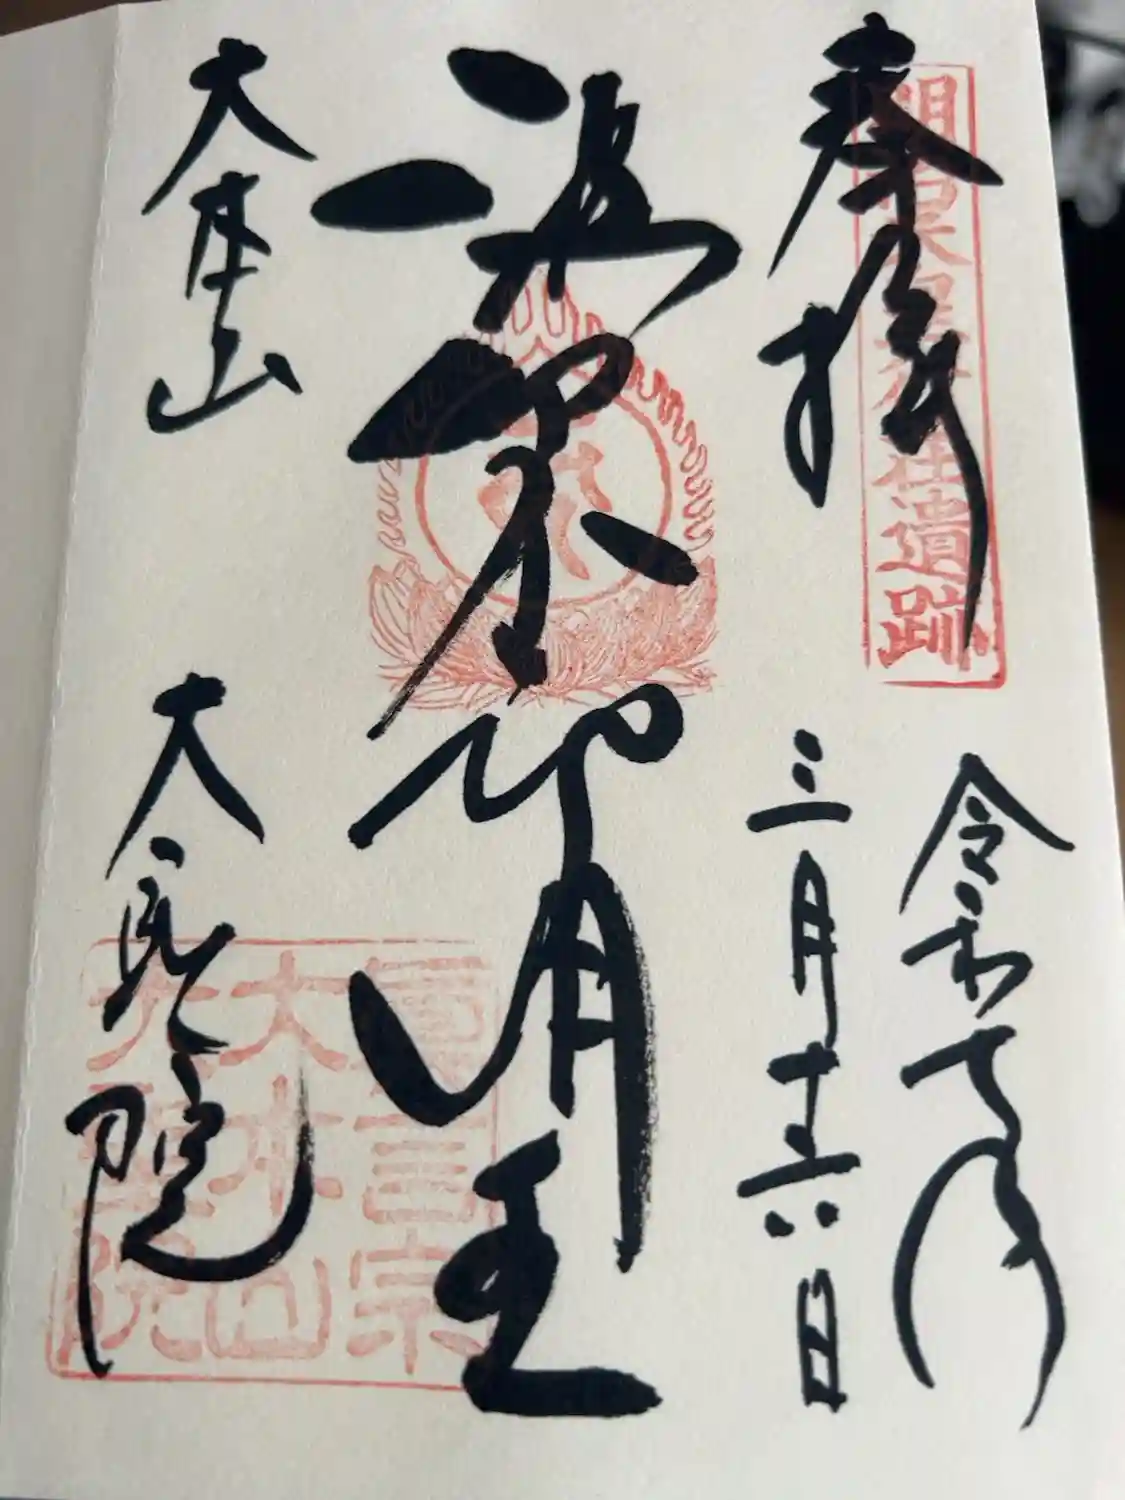 奉拝
遺跡
令和七年
三月十六日
波切不動明王
大本山
大聖院
真言宗
大本山
大聖院